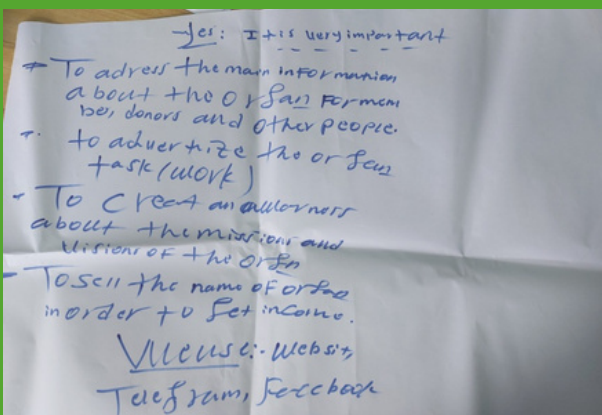 Yes: It is very important
- To adress the main information
about the organ For mem
ber, donors and other people.
- to advertize the organ
task (work)
- To Creat an awarness
about the missions and
Visions of the orgn
- To sell the name of organ
in order to get income.
We use:- websit,
Telegram, Facebook